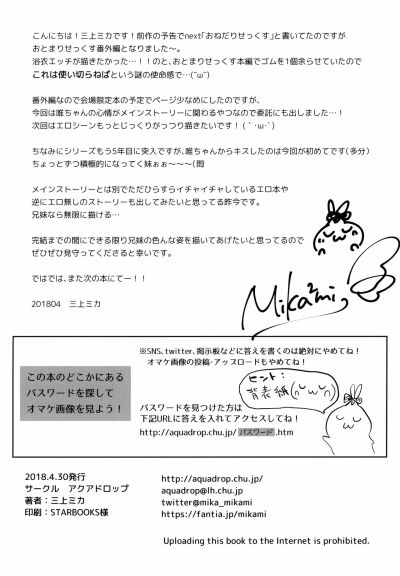 こんにちは！三上ミカです！前作の予告でnext「おねだりせっくす」と書いてたのですが
おとまりせっくす番外編となりました～。
浴衣エッチが描きたかった…！！のと、おとまりせっくす本編でゴムを1個余らせていたので
これは使い切らねばという謎の使命感で…(˘ω˘)
番外編なので会場限定本の予定でページ少なめにしたのですが、
今回は唯ちゃんの心情がメインストーリーに関わるやつなので委託にも出しました…！
次回はエロシーンもっとじっくりがっつり描きたいです！(｀･ω･´)
ちなみにシリーズもう5年目に突入ですが、唯ちゃんからキスしたのは今回が初めてです(多分)
ちょっとずつ積極的になってく妹ぉぉ～～～(悶
メインストーリーとは別でただひらすらイチャイチャしているエロ本や
逆にエロ無しのストーリーも出してみたいと思ってる昨今です。
兄妹なら無限に描ける…
完結までの間にできる限り兄妹の色んな姿を描いてあげたいと思ってるので
ぜひぜひ見守ってくださると幸いです。
ではでは、また次の本にてー！！
201804　三上ミカ
Mika2mi
※SNS、twitter、掲示板などに答えを書くのは絶対にやめてね！
オマケ画像の投稿・アップロードもやめてね！
この本のどこかにある
パスワードを探して
オマケ画像を見よう！
ヒント：
背表紙(˘ω˘)
パスワードを見つけた方は
下記URLに答えを入れてアクセスしてね！
http://aquadrop.chu.jp/ パスワード .htm
2018.4.30発行
サークル　アクアドロップ
著者：三上ミカ
印刷：STARBOOKS様
http://aquadrop.chu.jp/
aquadrop@lh.chu.jp
twitter@mika_mikami
https://fantia.jp/mikami
Uploading this book to the Internet is prohibited.